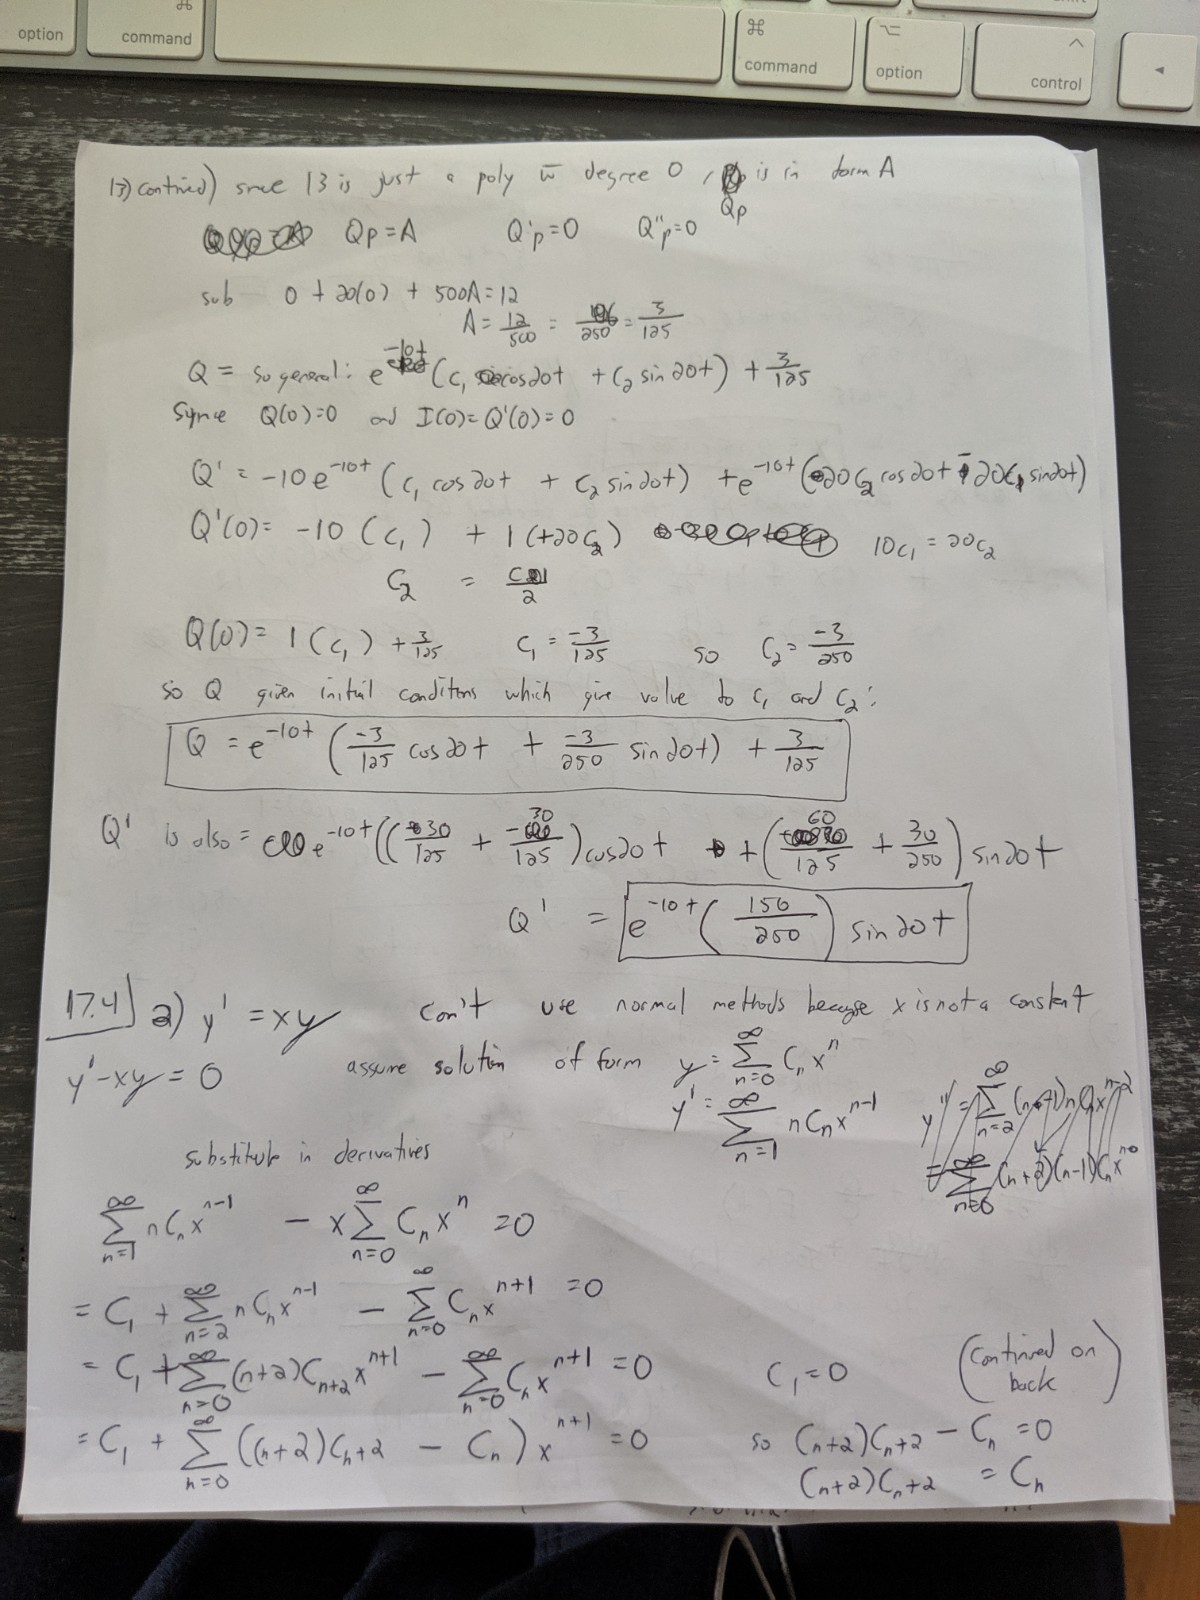 option ⌘ command ⌘ command ⌥ option ^ control ◄
13) contined) snce 13 is just a poly w̄ degree 0, is in form A
Qp
Qp = A Q'p = 0 Q''p = 0
sub 0 + 20(0) + 500A = 12
A = 12/500 = /250 = 3/125
Q = so general: e^-10t (C₁ cos20t + C₂ sin20t) + 3/125
Synce Q(0)=0 and I(0)=Q'(0)=0
Q' = -10e^-10t (C₁ cos20t + C₂ sin20t) + e^-10t (20C₂ cos20t - 20C₁ sin20t)
Q'(0) = -10 (C₁) + 1(+20C₂) 10C₁ = 20C₂
C₂ = C1/2
Q(0) = 1(C₁) + 3/125 C₁ = -3/125 so C₂ = -3/250
so Q given initial conditons which give value to C₁ and C₂:
Q = e^-10t (-3/125 cos20t + -3/250 sin20t) + 3/125
Q' is also = e^-10t ((30/125 + -30/125) cos20t + (60/125 + 30/250) sin20t
Q' = e^-10t (150/250) sin20t
17.4] 2) y' = xy can't use normal methods because x is not a constant
y' - xy = 0 assume solution of form y = ∞∑n=0 Cₙxⁿ
y' = ∞∑n=1 nCₙxⁿ⁻¹
substitute in derivatives
∞∑n=1 nCₙxⁿ⁻¹ - x ∞∑n=0 Cₙxⁿ = 0
= C₁ + ∞∑n=2 nCₙxⁿ⁻¹ - ∞∑n=0 Cₙxⁿ⁺¹ = 0
= C₁ + ∞∑n=0 (n+2)Cₙ₊₂xⁿ⁺¹ - ∞∑n=0 Cₙxⁿ⁺¹ = 0 C₁ = 0 (continued on back)
= C₁ + ∞∑n=0 ((n+2)Cₙ₊₂ - Cₙ) xⁿ⁺¹ = 0 so (n+2)Cₙ₊₂ - Cₙ = 0
(n+2)Cₙ₊₂ = Cₙ